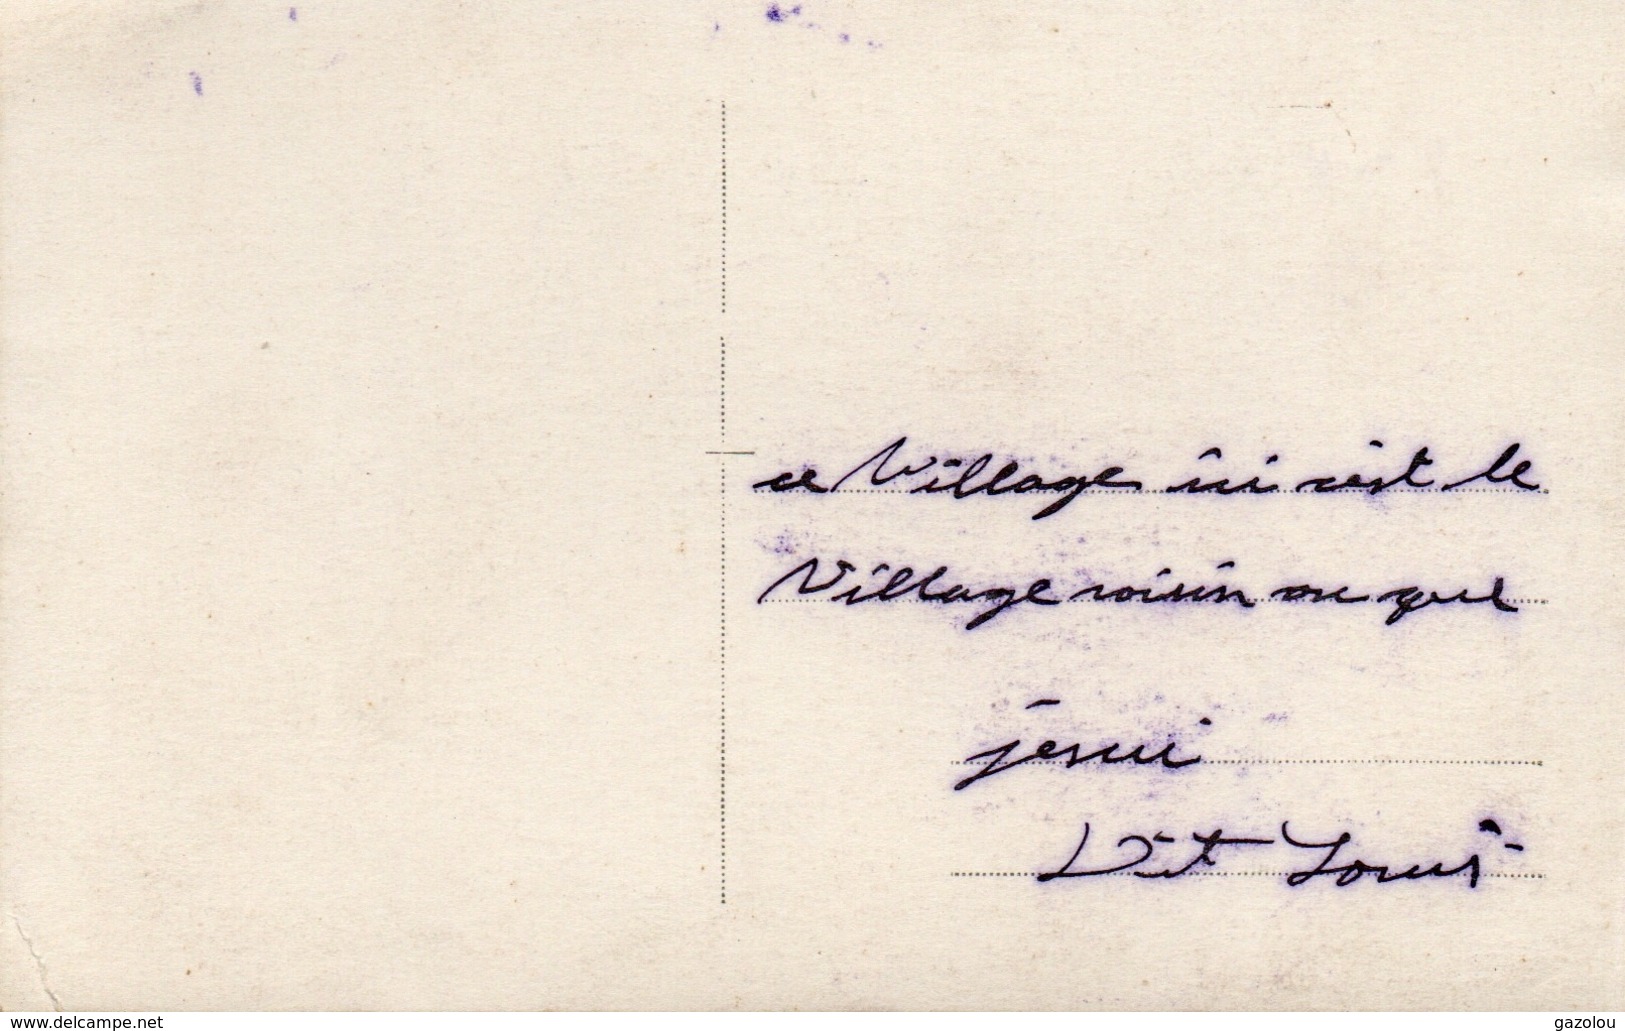 ce Village ici c'est le
Village voisin ou que
jesui
Louis
www.delcampe.net
gazolou